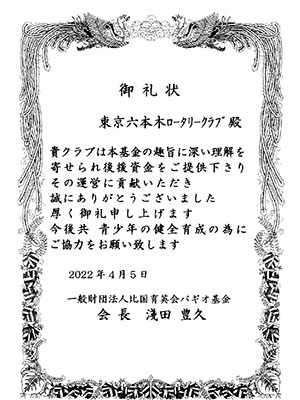 御礼状
東京六本木ﾛｰﾀﾘｰｸﾗﾌﾞ殿
貴クラブは本基金の趣旨に深い理解を
寄せられ後援資金をご提供下さり
その運営に貢献いただき
誠にありがとうございました
厚く御礼申し上げます
今後共 青少年の健全育成の為に
ご協力をお願い致します
2022年4月5日
一般財団法人比国育英会バギオ基金
会長 淺田 豊久